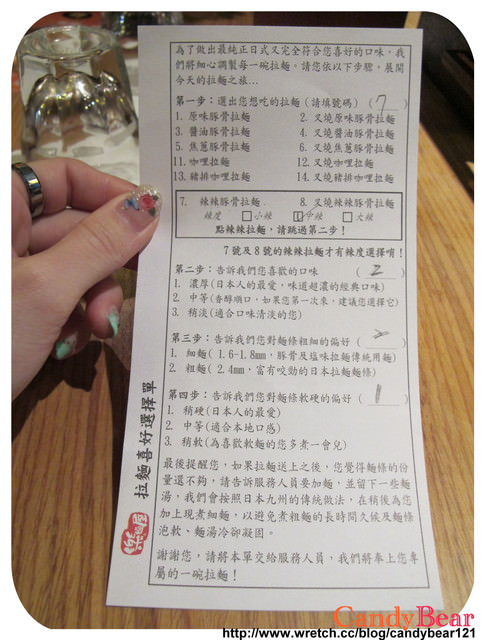 為了做出最純正日式又完全符合您喜好的口味，我
們將細心調製每一碗拉麵。請您依以下步驟，展開
今天的拉麵之旅...
第一步：選出您想吃的拉麵(請填號碼) ( 7 )
1. 原味豚骨拉麵 2. 叉燒原味豚骨拉麵
3. 醬油豚骨拉麵 4. 叉燒醬油豚骨拉麵
5. 焦蔥豚骨拉麵 6. 叉燒焦蔥豚骨拉麵
11. 咖哩拉麵 12. 叉燒咖哩拉麵
13. 豬排咖哩拉麵 14. 叉燒豬排咖哩拉麵
7. 辣辣豚骨拉麵 8. 叉燒辣辣豚骨拉麵
辣度 □小辣 □中辣 □大辣
點辣辣拉麵，請跳過第二步！
7號及8號的辣辣拉麵才有辣度選擇唷！
第二步：告訴我們您喜歡的口味 ( 2 )
1. 濃厚(日本人的最愛，味道超濃的經典口味)
2. 中等(香醇順口，如果您第一次來，建議您選擇它)
3. 稍淡(適合口味清淡的您)
第三步：告訴我們您對麵條粗細的偏好 ( 2 )
1. 細麵 (1.6-1.8mm，豚骨及塩味拉麵傳統用麵)
2. 粗麵 (2.4mm，富有咬勁的日本拉麵麵條)
第四步：告訴我們您對麵條軟硬的偏好 ( 1 )
1. 稍硬(日本人的最愛)
2. 中等(適合本地口感)
3. 稍軟(為喜歡軟麵的您多煮一會兒)
最後提醒您，如果拉麵送上之後，您覺得麵條的份
量還不夠，請告訴服務人員要加麵，並留下一些麵
湯，我們會按照日本九州的傳統做法，在稍後為您
加上現煮細麵，以避免煮粗麵的長時間久候及麵條
泡軟、麵湯冷卻凝固。
謝謝您，請將本單交給服務人員，我們將奉上您專
屬的一碗拉麵！
拉麵喜好選擇單
CandyBear
http://www.wretch.cc/blog/candybear121